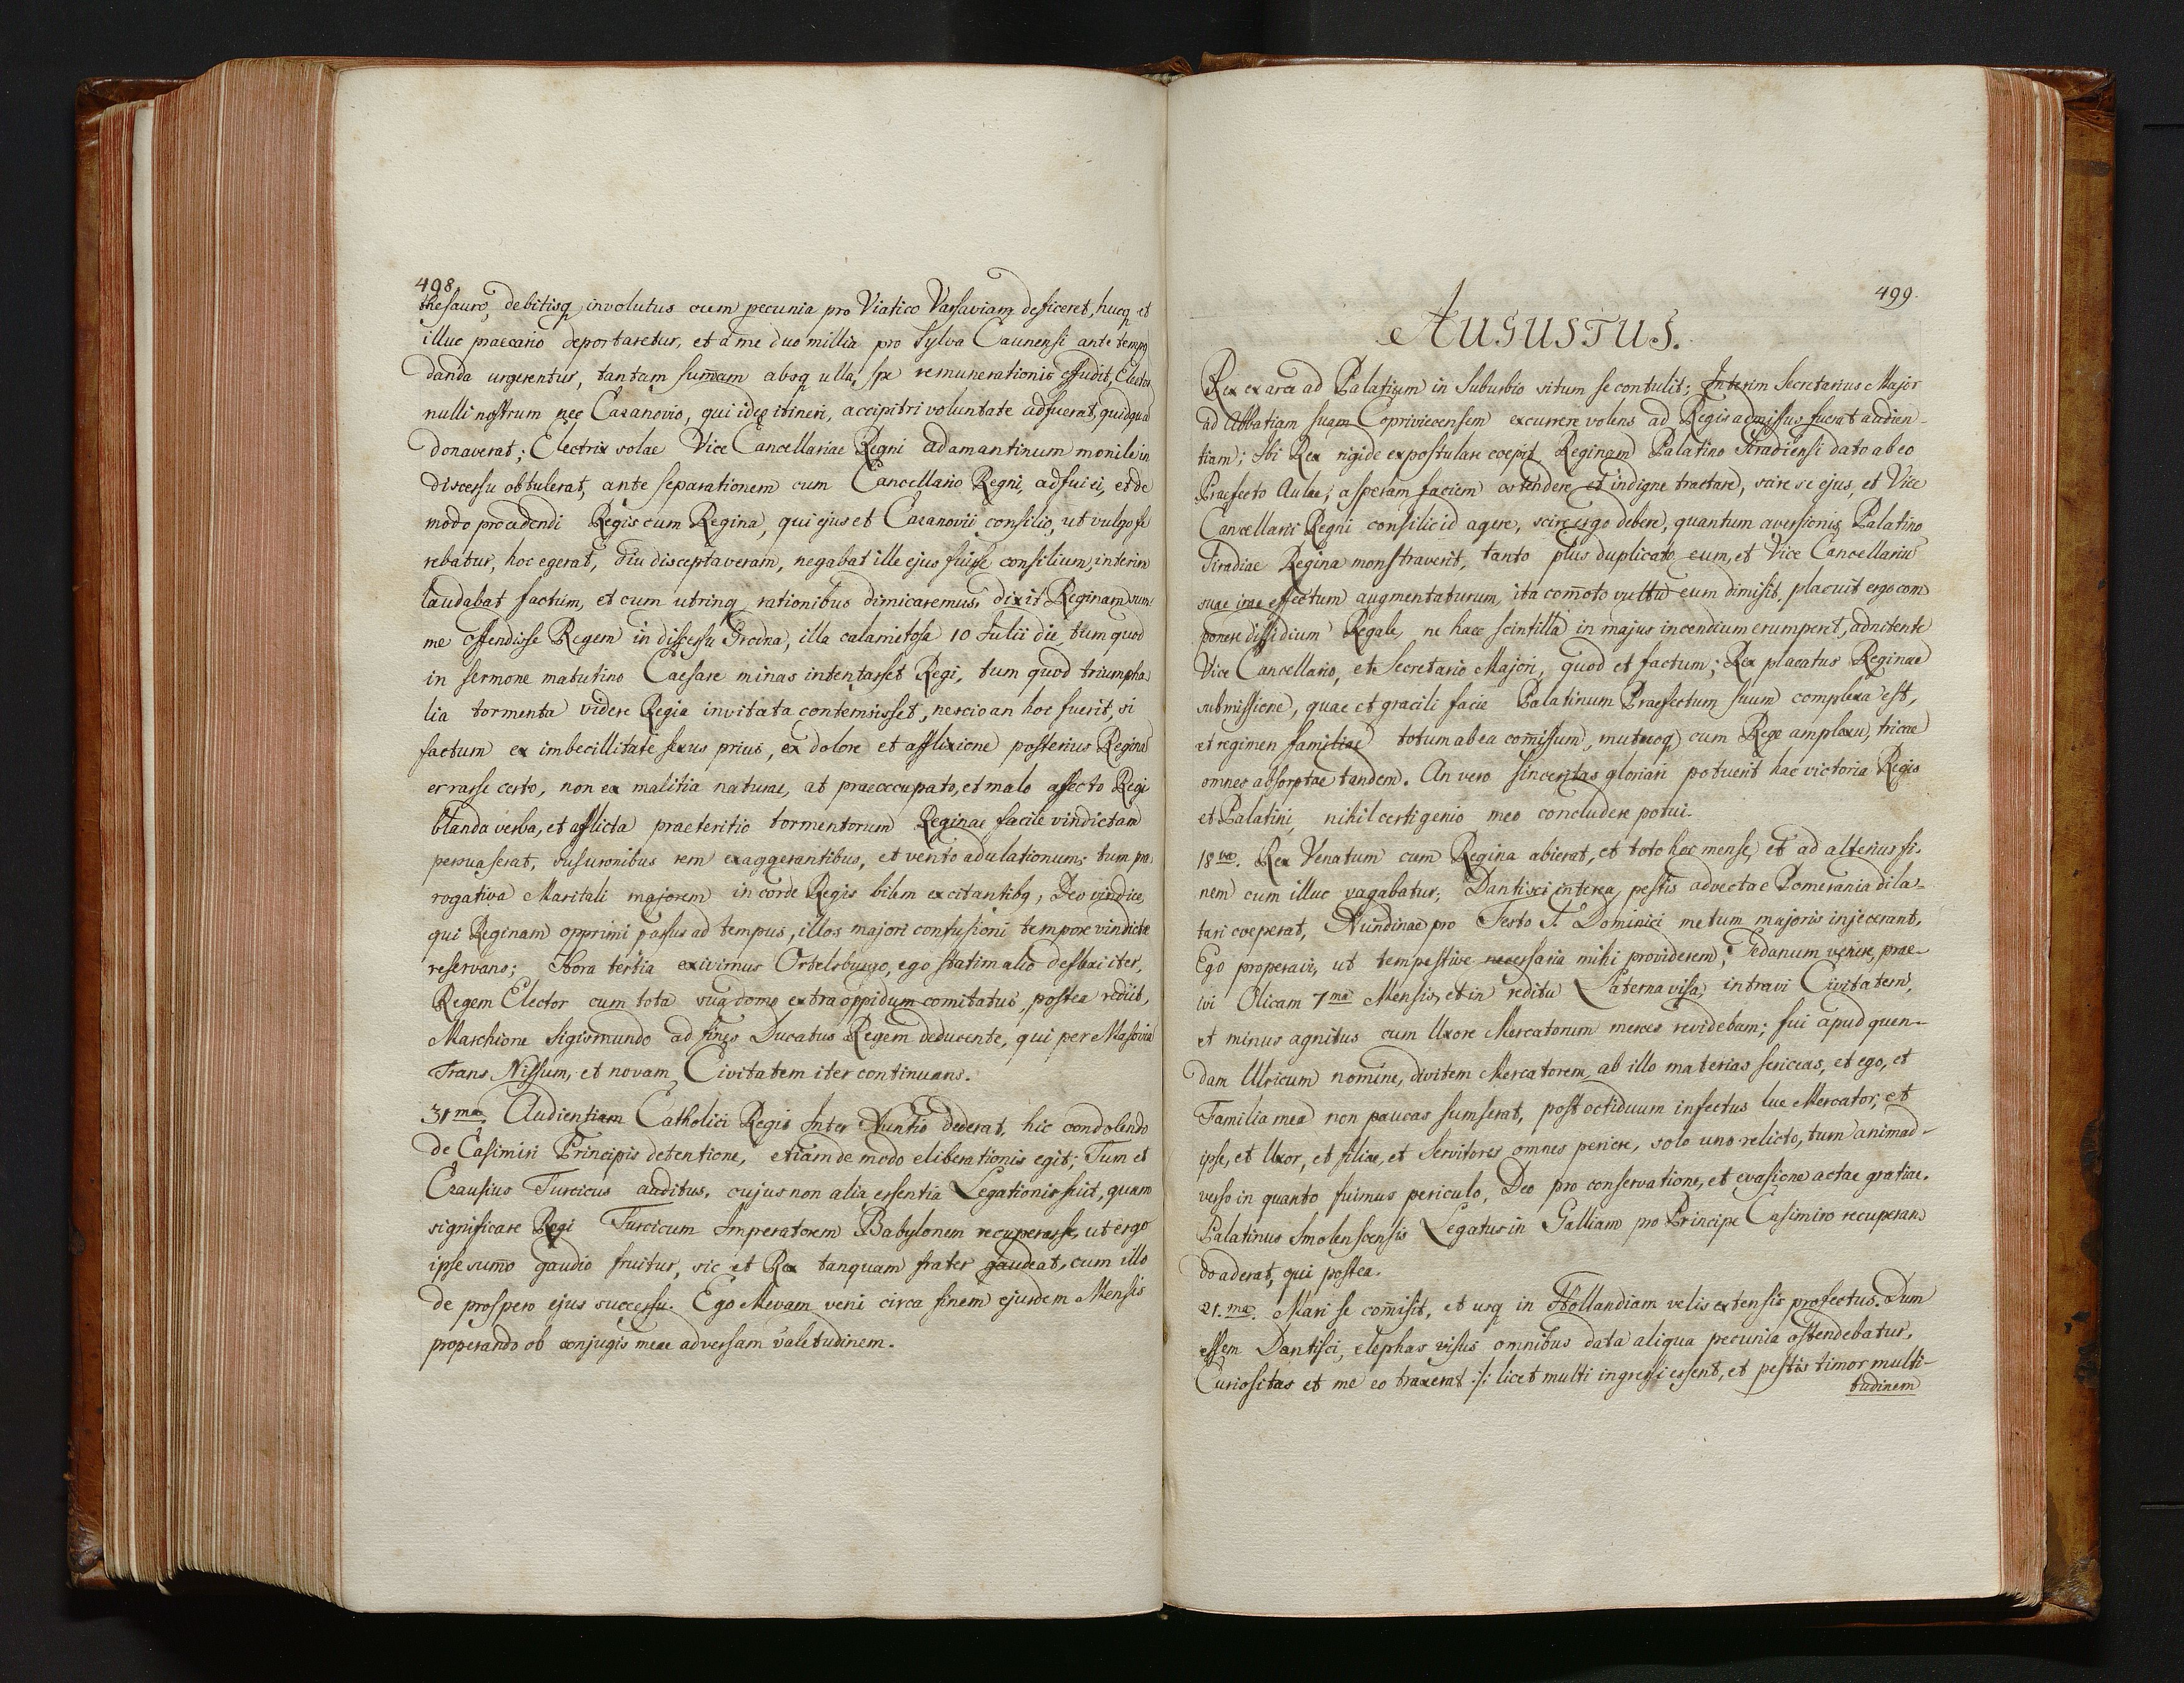 498.
thesauro, debitisq involutus cum pecunia pro Viatico Varsaviam deficeret, hucq et
illuc praecario deportaretur, et a me duo millia pro Sylva Caunensi ante tempq
danda urgerentur, tantam sum̄am absq ulla spe remunerationis effudit, Elector
nulli nostrum nec Cazanovio, qui ideo itineri, accipitri voluntate adfuerat, quidqua
donaverat; Electrix solae Vice Cancellariae Regni adamantinum monile in
discessu obtulerat, ante separationem cum Cancellario Regni, adfui ei, et de
modo procedendi Regis cum Regina, qui ejus et Cazanovii consilio, ut vulgo fe
rebatur, hoc egerat, diu disceptaveram, negabat ille ejus fuisse consilium, interim
laudabat factum, et cum utrinq rationibus dimicaremus, dixit Reginam sum
me offendisse Regem in discessu Grodna, illa calamitosa 10 Julii die, tum quod
in sermone matutino Caesare minas intentasset Regi, tum quod triumpha
lia tormenta videre Regia invitata contemsisset, nescio an hoc fuerit, si
factum ex imbecillitate sexus prius, ex dolore et afflixione posterius Regina
errasse certo, non ex malitia naturae, at praeoccupato, et malo affecto Regi
blanda verba, et afflicta praeteritio tormentorum Reginae facile vindictam
persuaserat, susuronibus rem exaggerantibus, et vento adulationum; tum pre
rogativa Maritali majorem in corde Regis bilem excitantibq, Deo vindice,
qui Reginam opprimi passus ad tempus, illos majori confusioni tempore vindictae
reservans; Hora tertia exivimus Ortelsburgo, ego statim alio deflexi iter,
Regem Elector cum tota sua domo extra oppidum comitatus, postea rediit,
Marchione Sigismundo ad fines Ducatus Regem deducente, qui per Masovia
Trans Nissum, et novam Civitatem iter continuans.
31ma. Audientiam Catholici Regis Inter Nuntio dederat, hic condolendo
de Casimiri Principis detentione, etiam de modo eliberationis egit; Tum et
Czausius Turcicus auditus, cujus non alia essentia Legationis fuit, quam
significare Regi Turcicum Imperatorem Babylonem recuperasse, ut ergo
ipse sum̄o gaudio fruitur, sic et Rex tanquam frater gaudeat, cum illo
de prospero ejus successu. Ego Mevam veni circa finem ejusdem Mensis
properando ob conjugis meae adversam valetudinem.
499.
AUGUSTUS.
Rex ex arce ad Palatium in Suburbio situm se contulit; Interim Secretarius Major
ad Abbatiam suam Coprivicensem excurrere volens ad Regis admissus fuerat audien-
tiam; Ibi Rex rigide expostulare coepit Reginam Palatino Siradiensi dato ab eo
Praefecto Aulae; asperam faciem ostendere et indigne tractare, scire se ejus, et Vice
Cancellarii Regni consilio id agere, scire ergo debere, quantum aversionis Palatino
Siradiae Regina monstraverit, tanto plus duplicato eum, et Vice Cancellarius
suae irae effectum augmentaturum, ita com̄oto vultu eum dimisit, placuit ergo com
ponere dissidium Regale, ne haec scintilla in majus incendium erumperet, adnitente
Vice Cancellario, et Secretario Majori, quod et factum; Rex placatus Reginae
submissione, quae et gracili facie Palatinum Praefectum suum complexa est,
et regimen familiae totum ab ea com̄issum, mutuoq cum Rege amplexu, tricae
omnes absorptae tandem. An vero sinceritas gloriari potuerit hac victoria Regis
et Palatini, nihil certi genio meo concludere potui.
18va. Rex Venatum cum Regina abierat, et toto hoc mense, et ad alterius fi-
nem cum illuc vagabatur; Dantisci interea pestis advecta e Pomerania dila-
tari coeperat, Nundinae pro Festo S. Dominici metum majoris injecerant,
Ego properavi, ut tempestive necessaria mihi providerem; Gedanum venire, prae-
ivi Olicam 7ma Mensis, et in reditu Laterna visa, intravi Civitatem,
et minus agnitus cum Uxore Mercatorum merces revidebam; fui apud quen-
dam Ulricum nomine, divitem Mercatorem, ab illo materias sericeas, et ego, et
Familia mea non paucas sumserat, post octiduum infectus lue Mercator, et
ipse, et Uxor, et filiae, et Servitores omnes periere, solo uno relicto, tum animad-
verso in quanto fuimus periculo, Deo pro conservatione, et evasione actae gratiae.
Palatinus Smolenscensis Legatus in Galliam pro Principe Casimiro recuperan-
do aderat, qui postea.
21.ma. Mari se com̄isit, et usq in Hollandiam velis extensis profectus. Dum
essem Dantisci, elephas visus omnibus data aliqua pecunia ostendebatur,
Curiositas et me eo traxerat :/: licet multi ingressi essent, et pestis timor multi-
tudinem